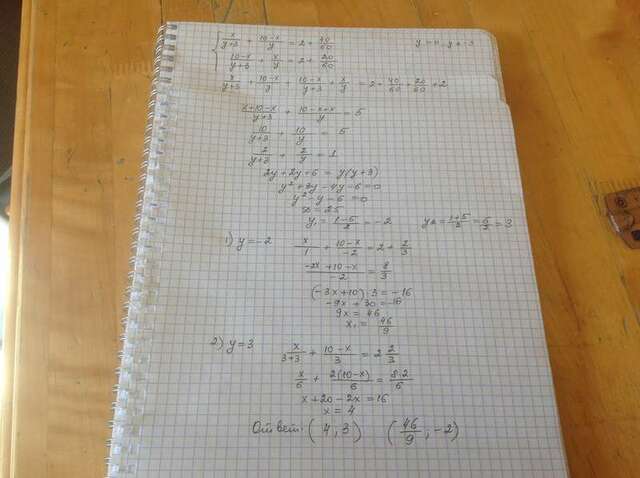 x/(y+3) + (10-x)/y = 2 + 40/60     y≠0, y≠-3
(10-x)/(y+3) + x/y = 2 + 20/60
x/(y+3) + (10-x)/y + (10-x)/(y+3) + x/y = 2 + 40/60 + 20/60 + 2
(x+10-x)/(y+3) + (10-x+x)/y = 5
10/(y+3) + 10/y = 5
2/(y+3) + 2/y = 1
2y+2y+6 = y(y+3)
y²+3y-4y-6=0
y²-y-6=0
D=25
y₁ = (1-5)/2 = -2     y₂ = (1+5)/2 = 6/2 = 3
1) y=-2     x/1 + (10-x)/-2 = 2 + 2/3
(-2x+10-x)/-2 = 8/3
(-3x+10)·3 = -16
-9x+30=-16
9x = 46
x₁ = 46/9
2) y=3     x/(3+3) + (10-x)/3 = 2 2/3
x/6 + 2(10-x)/6 = 8·2/6
x+20-2x=16
x=4
Ответ: (4; 3)     (46/9; -2)